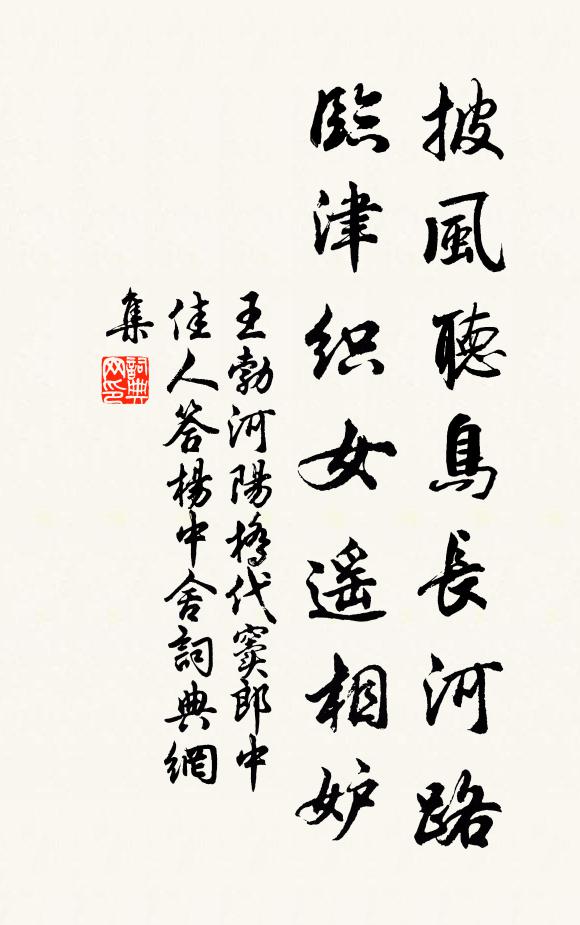 披風聽鳥長河路
臨津織女遥相妒
王勃河陽橋代竇郎中
佳人答楊中舍詞典網
集
詞典
网印